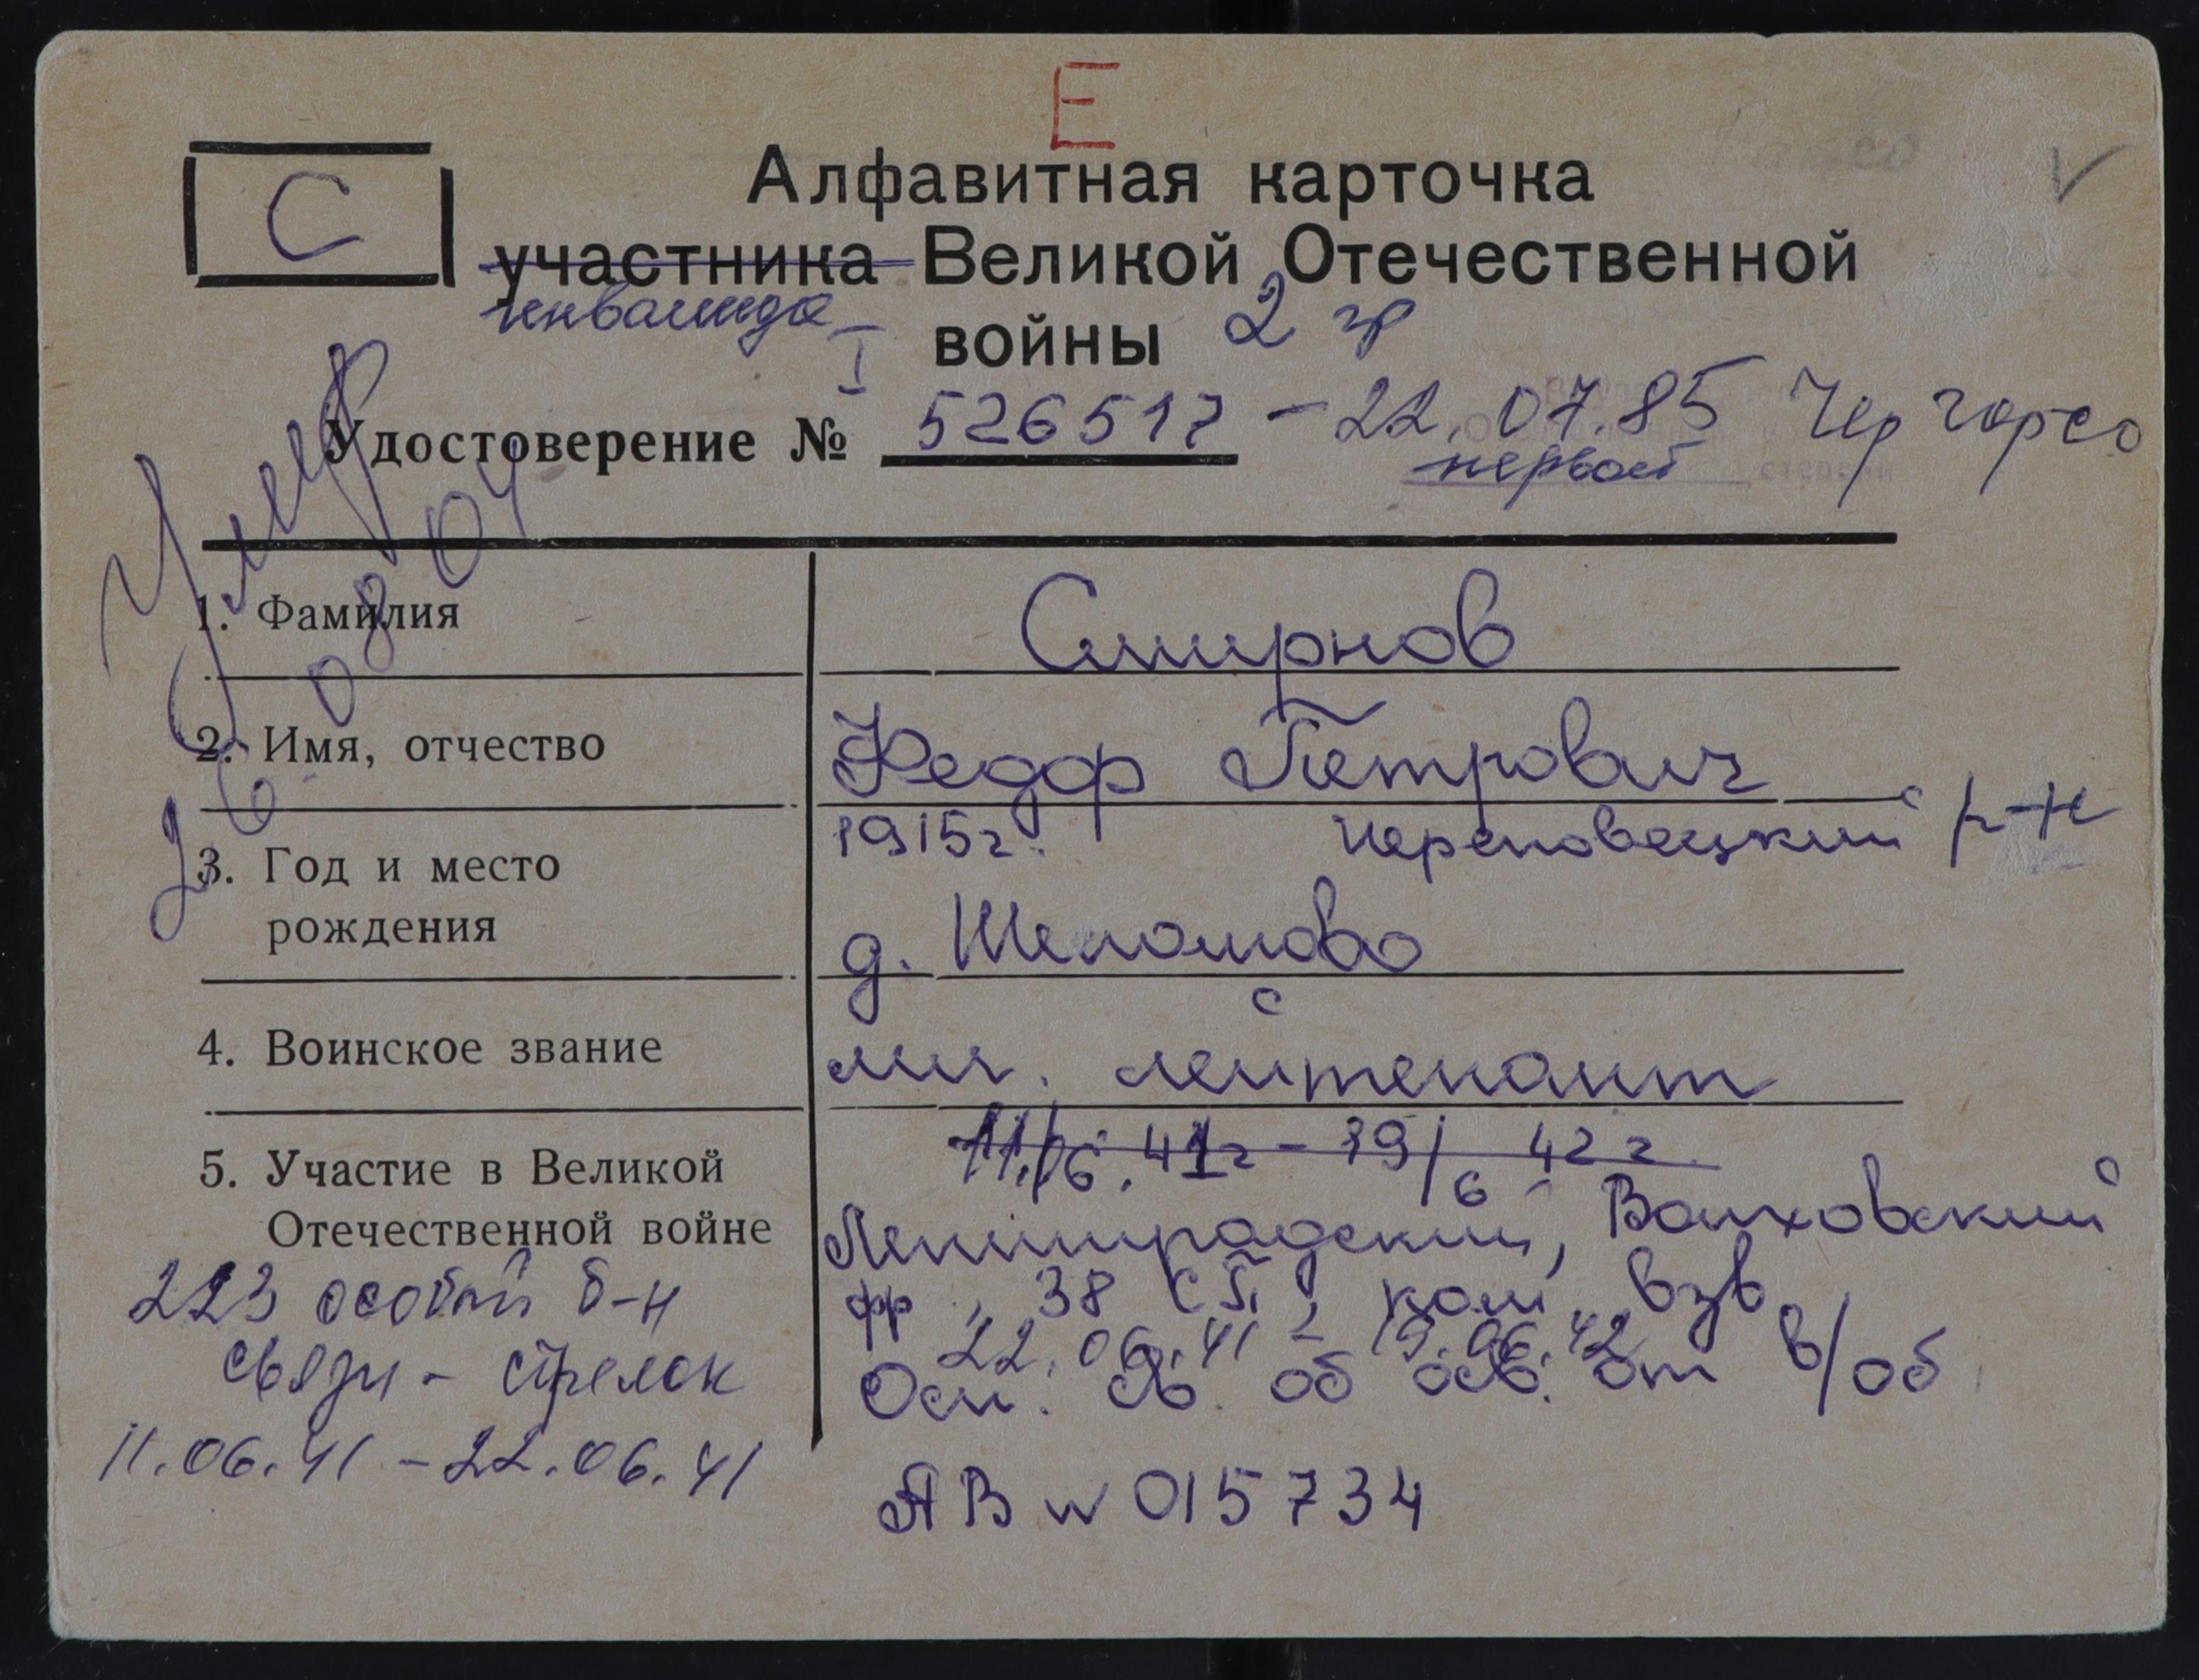 Е
С
Алфавитная карточка
участника Великой Отечественной
инвалида I войны 2 гр
Удостоверение № 526517 – 22.07.85 Чер горсо
первой степени
Умер
26 08 04
1. Фамилия Смирнов
2. Имя, отчество Федор Петрович
3. Год и место 1915г. Череповецкий р-н
рождения д. Шеломово
4. Воинское звание мл. лейтенант
5. Участие в Великой 11/6. 41г – 19/6 42 г.
Отечественной войне Ленинградский, Волховский
223 особый б-н фр, 38 СП, ком. взв
22.06.41 – 19.06.42
связи - стрелок Осн. св. об осв. от в/об
11.06.41 – 22.06.41
АВ № 015734